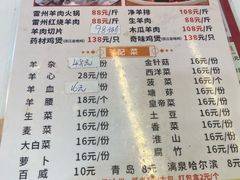 雷州羊肉火锅 88元/斤 净羊排 108元/斤
雷州红烧羊肉 88元/斤 生羊肉 88元/斤
羊肉切片 木瓜羊肉 108元/斤
药材鸡煲 138元/只 奇味鸡煲 138元/只
配菜
羊杂 /份 金针菇 16元/份
羊心 28元/份 西洋菜 16元/份
羊血 /份 菠菜 16元/份
羊腰 /份 塘蒿 16元/份
生菜 16元/份 皇帝菜 16元/份
麦菜 16元/份 豆腐 16元/份
大白菜 16元/份 土豆 16元/份
萝卜 16元/份 冬瓜 16元/份
百威 10元 青岛 8元 漓泉哈尔滨 8元